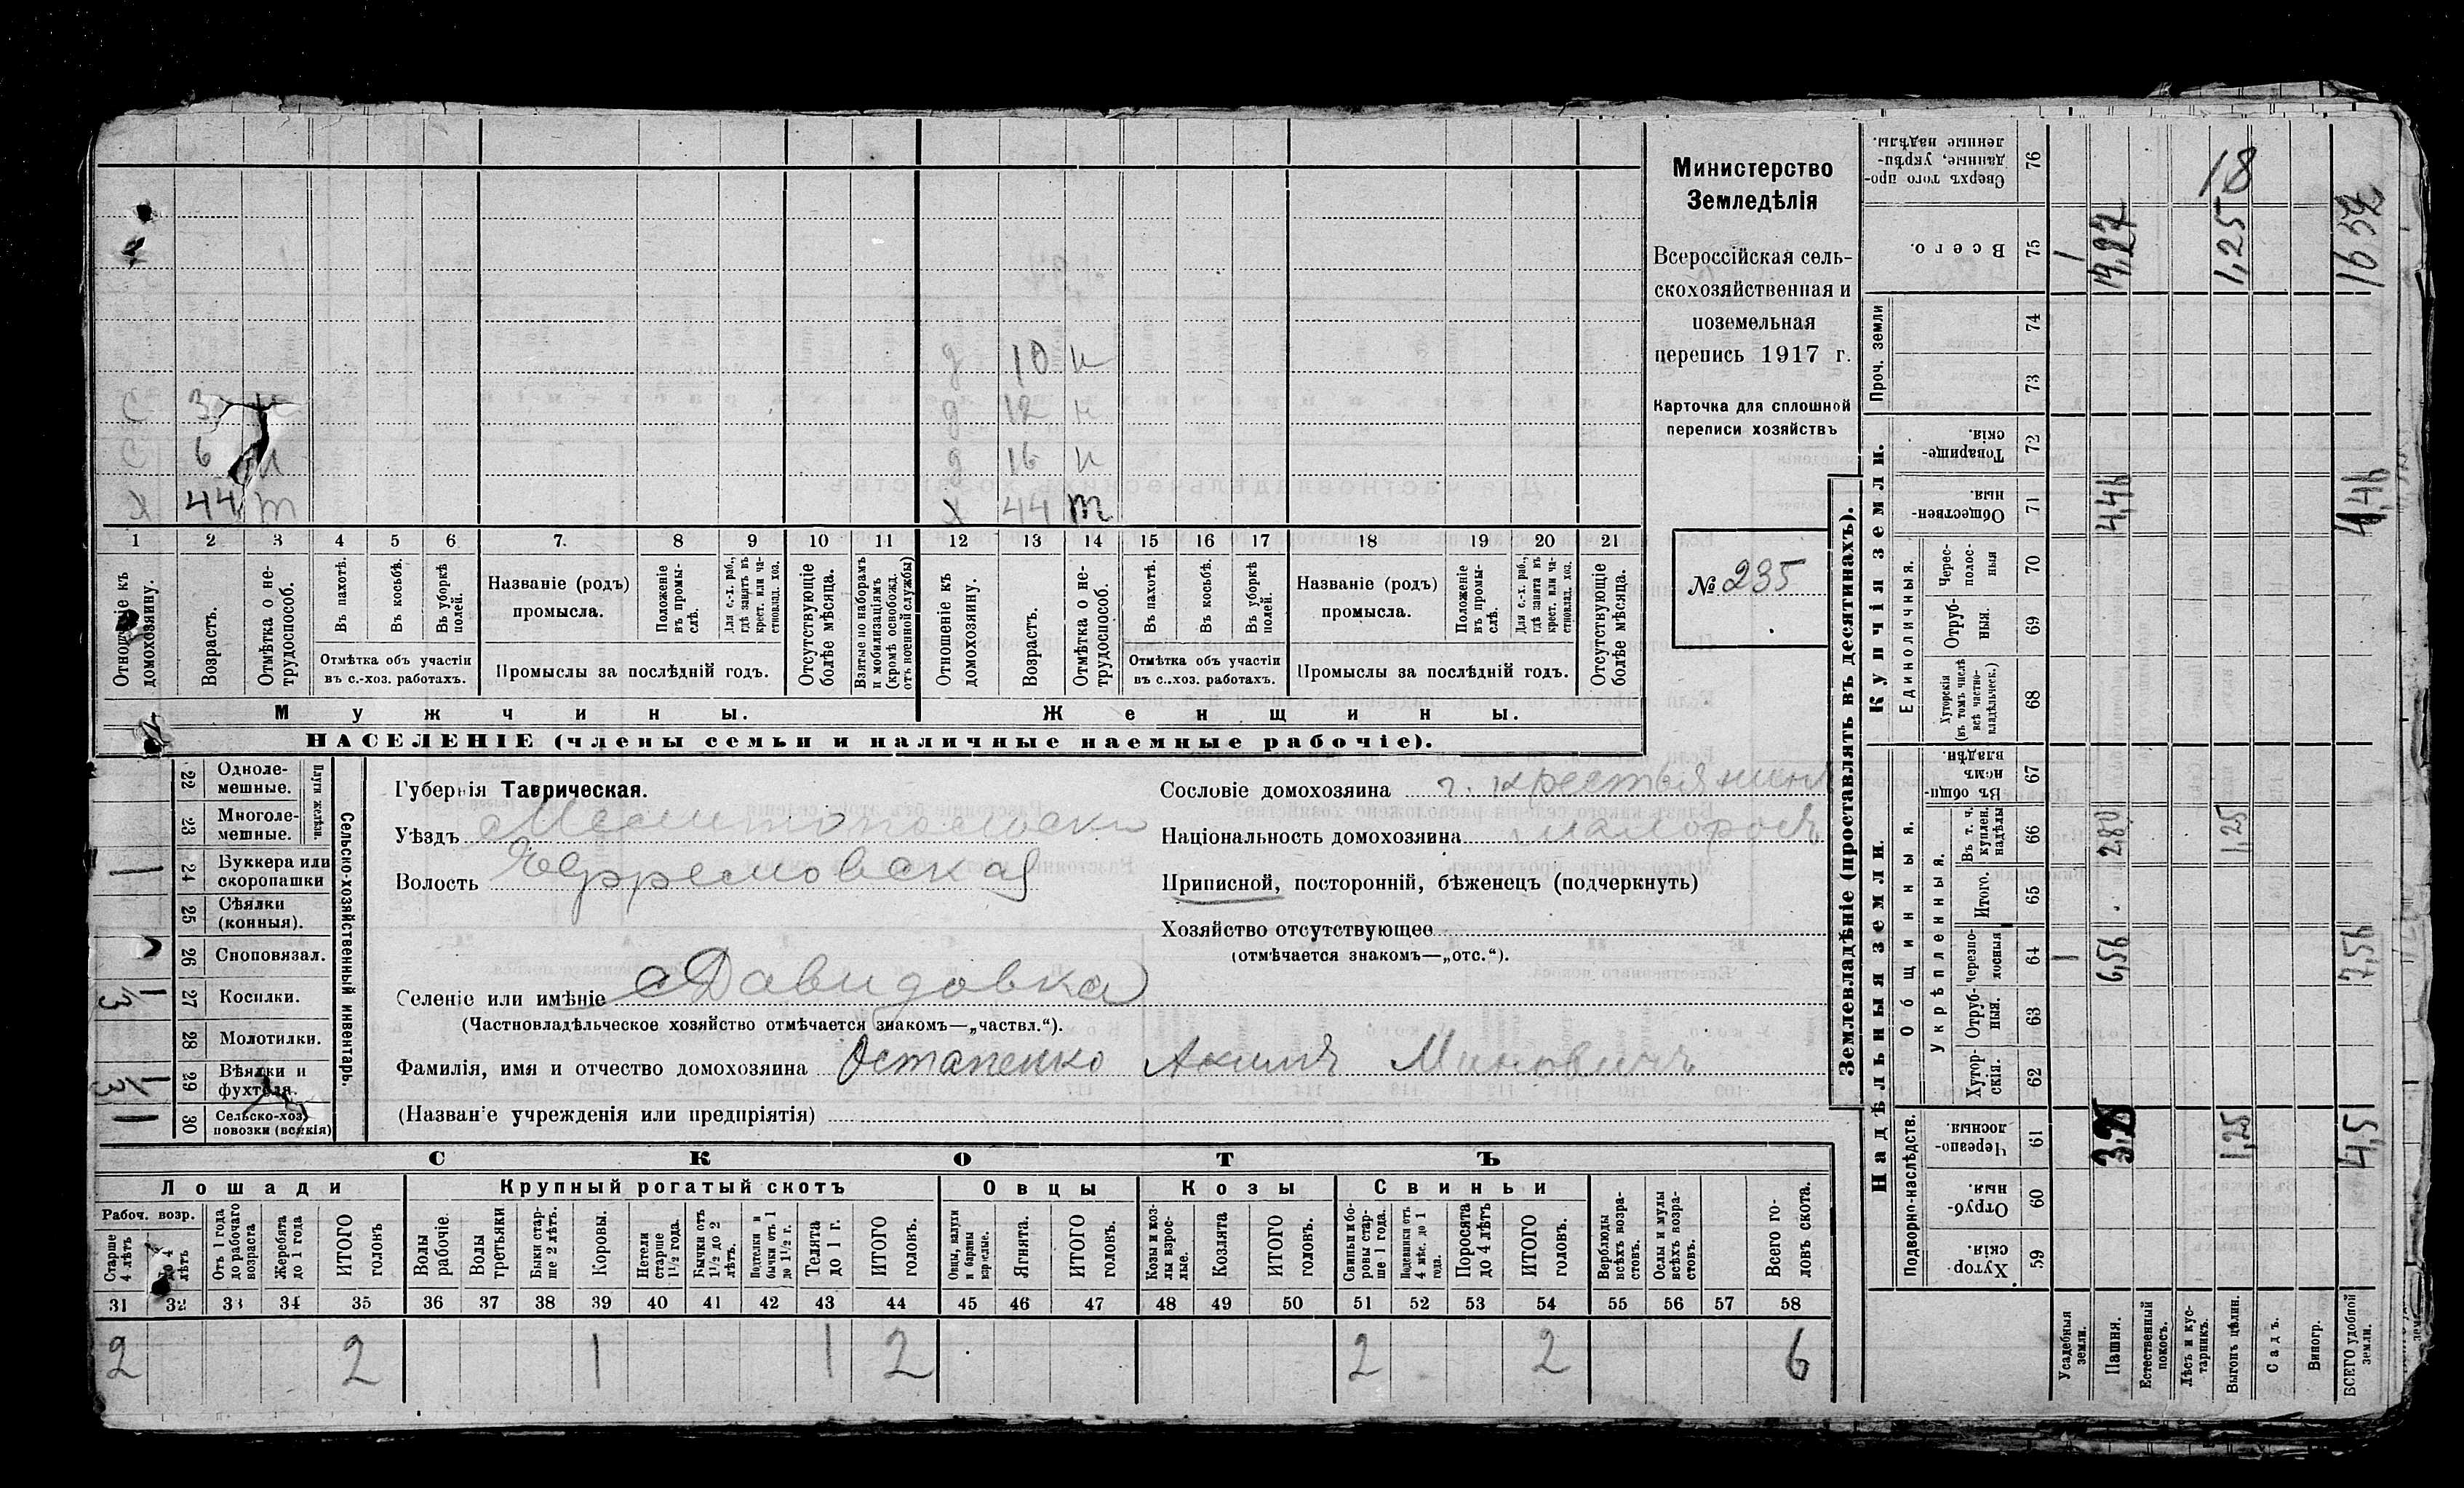 Министерство
Земледѣлія
Всероссійская сель-
скохозяйственная и
поземельная
перепись 1917 г.
Карточка для сплошной
переписи хозяйствъ
№ 235
д 10 н
С 3 д 12 н
С 6 н д 16 н
Х 44 т Х 44 т
1 2 3 4 5 6 7. 8 9 10 11 12 13 14 15 16 17 18 19 20 21
Отношеніе къ домохозяину.
Возрастъ.
Отмѣтка о не-
трудоспособ.
Въ пахотѣ.
Въ косьбѣ.
Въ уборкѣ
полей.
Отмѣтка объ участіи
въ с.-хоз. работахъ.
Названіе (родъ)
промысла.
Положеніе
въ промы-
слѣ.
Для с.-х. раб.,
гдѣ занятъ въ
крест. или ча-
стновлад. хоз.
Промыслы за послѣдній годъ.
Отсутствующіе
болѣе мѣсяца.
Взятые по наборамъ
и мобилизаціямъ
(кромѣ освобожд.
отъ военной службы)
Отношеніе къ
домохозяину.
Возрастъ.
Отмѣтка о не-
трудоспособ.
Въ пахотѣ.
Въ косьбѣ.
Въ уборкѣ
полей.
Отмѣтка объ участіи
въ с..хоз. работахъ.
Названіе (родъ)
промысла.
Положеніе
въ промы-
слѣ.
Для с.-х. раб.,
гдѣ занятъ въ
крест. или ча-
стновлад. хоз.
Промыслы за послѣдній годъ.
Отсутствующіе
болѣе мѣсяца.
Мужчины. Женщины.
НАСЕЛЕНІЕ (члены семьи и наличные наемные рабочіе).
Сельско-хозяйственный инвентарь.
Плуги желѣзн.
22 Одноле-
мешные.
23 Многоле-
мешные.
1 24 Буккера или
скоропашки
25 Сѣялки
(конныя).
26 Сноповязал.
1/3 27 Косилки.
28 Молотилки.
1/3 29 Вѣялки и
фухтеля.
1 30 Сельско-хоз.
повозки (всякія)
Губернія Таврическая.
Уѣздъ Мелитопольски
Волость Ефремовская
Селеніе или имѣніе Давидовка
(Частновладѣльческое хозяйство отмѣчается знакомъ—„частвл.“).
Фамилія, имя и отчество домохозяина Остапенко Акимъ Миновичъ
(Названіе учрежденія или предпріятія)
Сословіе домохозяина крестьянинъ
Національность домохозяина малороссъ
Приписной, посторонній, бѣженецъ (подчеркнуть)
Хозяйство отсутствующее
(отмѣчается знакомъ—„отс.“).
СКОТЪ
Лошади Крупный рогатый скотъ Овцы Козы Свиньи
Рабоч. возр.
Старше
4 лѣтъ
до 4
лѣтъ
Отъ 1 года
до рабочаго
возраста
Жеребята
до 1 года
ИТОГО
головъ
Волы
рабочіе.
Волы
третьяки
Быки стар-
ше 2 лѣтъ.
Коровы.
Нетели
старше
1½ года.
Бычки отъ
1½ до 2
лѣтъ.
Подтелки и
бычки отъ 1
до 1½ г.
Телята
до 1 г.
ИТОГО
головъ.
Овцы, валухи
и бараны
взрослые.
Ягнята.
ИТОГО
головъ.
Козы и коз-
лы взрос-
лые.
Козлята
ИТОГО
головъ.
Свиньи и бо-
ровы стар-
ше 1 года.
Подсвинки отъ
4 мѣс. до 1
года.
Поросята
до 4 лѣтъ
ИТОГО
головъ.
Верблюды
всѣхъ возра-
стовъ.
Ослы и мулы
всѣхъ возра-
стовъ.
Всего го-
ловъ скота.
31 32 33 34 35 36 37 38 39 40 41 42 43 44 45 46 47 48 49 50 51 52 53 54 55 56 57 58
2 2 1 1 2 2 2 6
Землевладѣніе (проставлять въ десятинахъ).
Надѣльныя земли.
Купчія земли.
Проч. земли
Подворно-наслѣдств.
Общинныя.
Укрѣпленныя.
Единоличныя.
Хутор-
скія.
59
Отруб-
ныя.
60
Черезпо-
лосныя.
61
Хутор-
скія.
62
Отруб-
ныя.
63
Черезпо-
лосныя
64
Итого.
65
Въ т. ч.
куплен.
надѣлы
66
Въ общи-
немъ
владѣн.
67
Хуторскія
(въ томъ числѣ
всѣ частно-
владѣльческ.)
68
Отруб-
ныя.
69
Черес-
полос-
ныя
70
Обществен-
ныя.
71
Товарище-
скія.
72
73
74
Всего.
75
Сверхъ того про-
данные, укрѣп-
ленные надѣлы.
76
Усадебныя
земли. 1 1
Пашня. 6,56 2,80 4,46
Естественный
покосъ.
Лѣсъ и кус-
тарникъ.
Выгонъ цѣлин. 1,25 1,25 1,25 18
Садъ.
Виногр.
ВСЕГО удобной
земли. 4,51 7,56 4,46